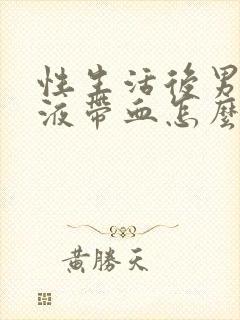 性生活後男
液帶血怎麼
黃勝天